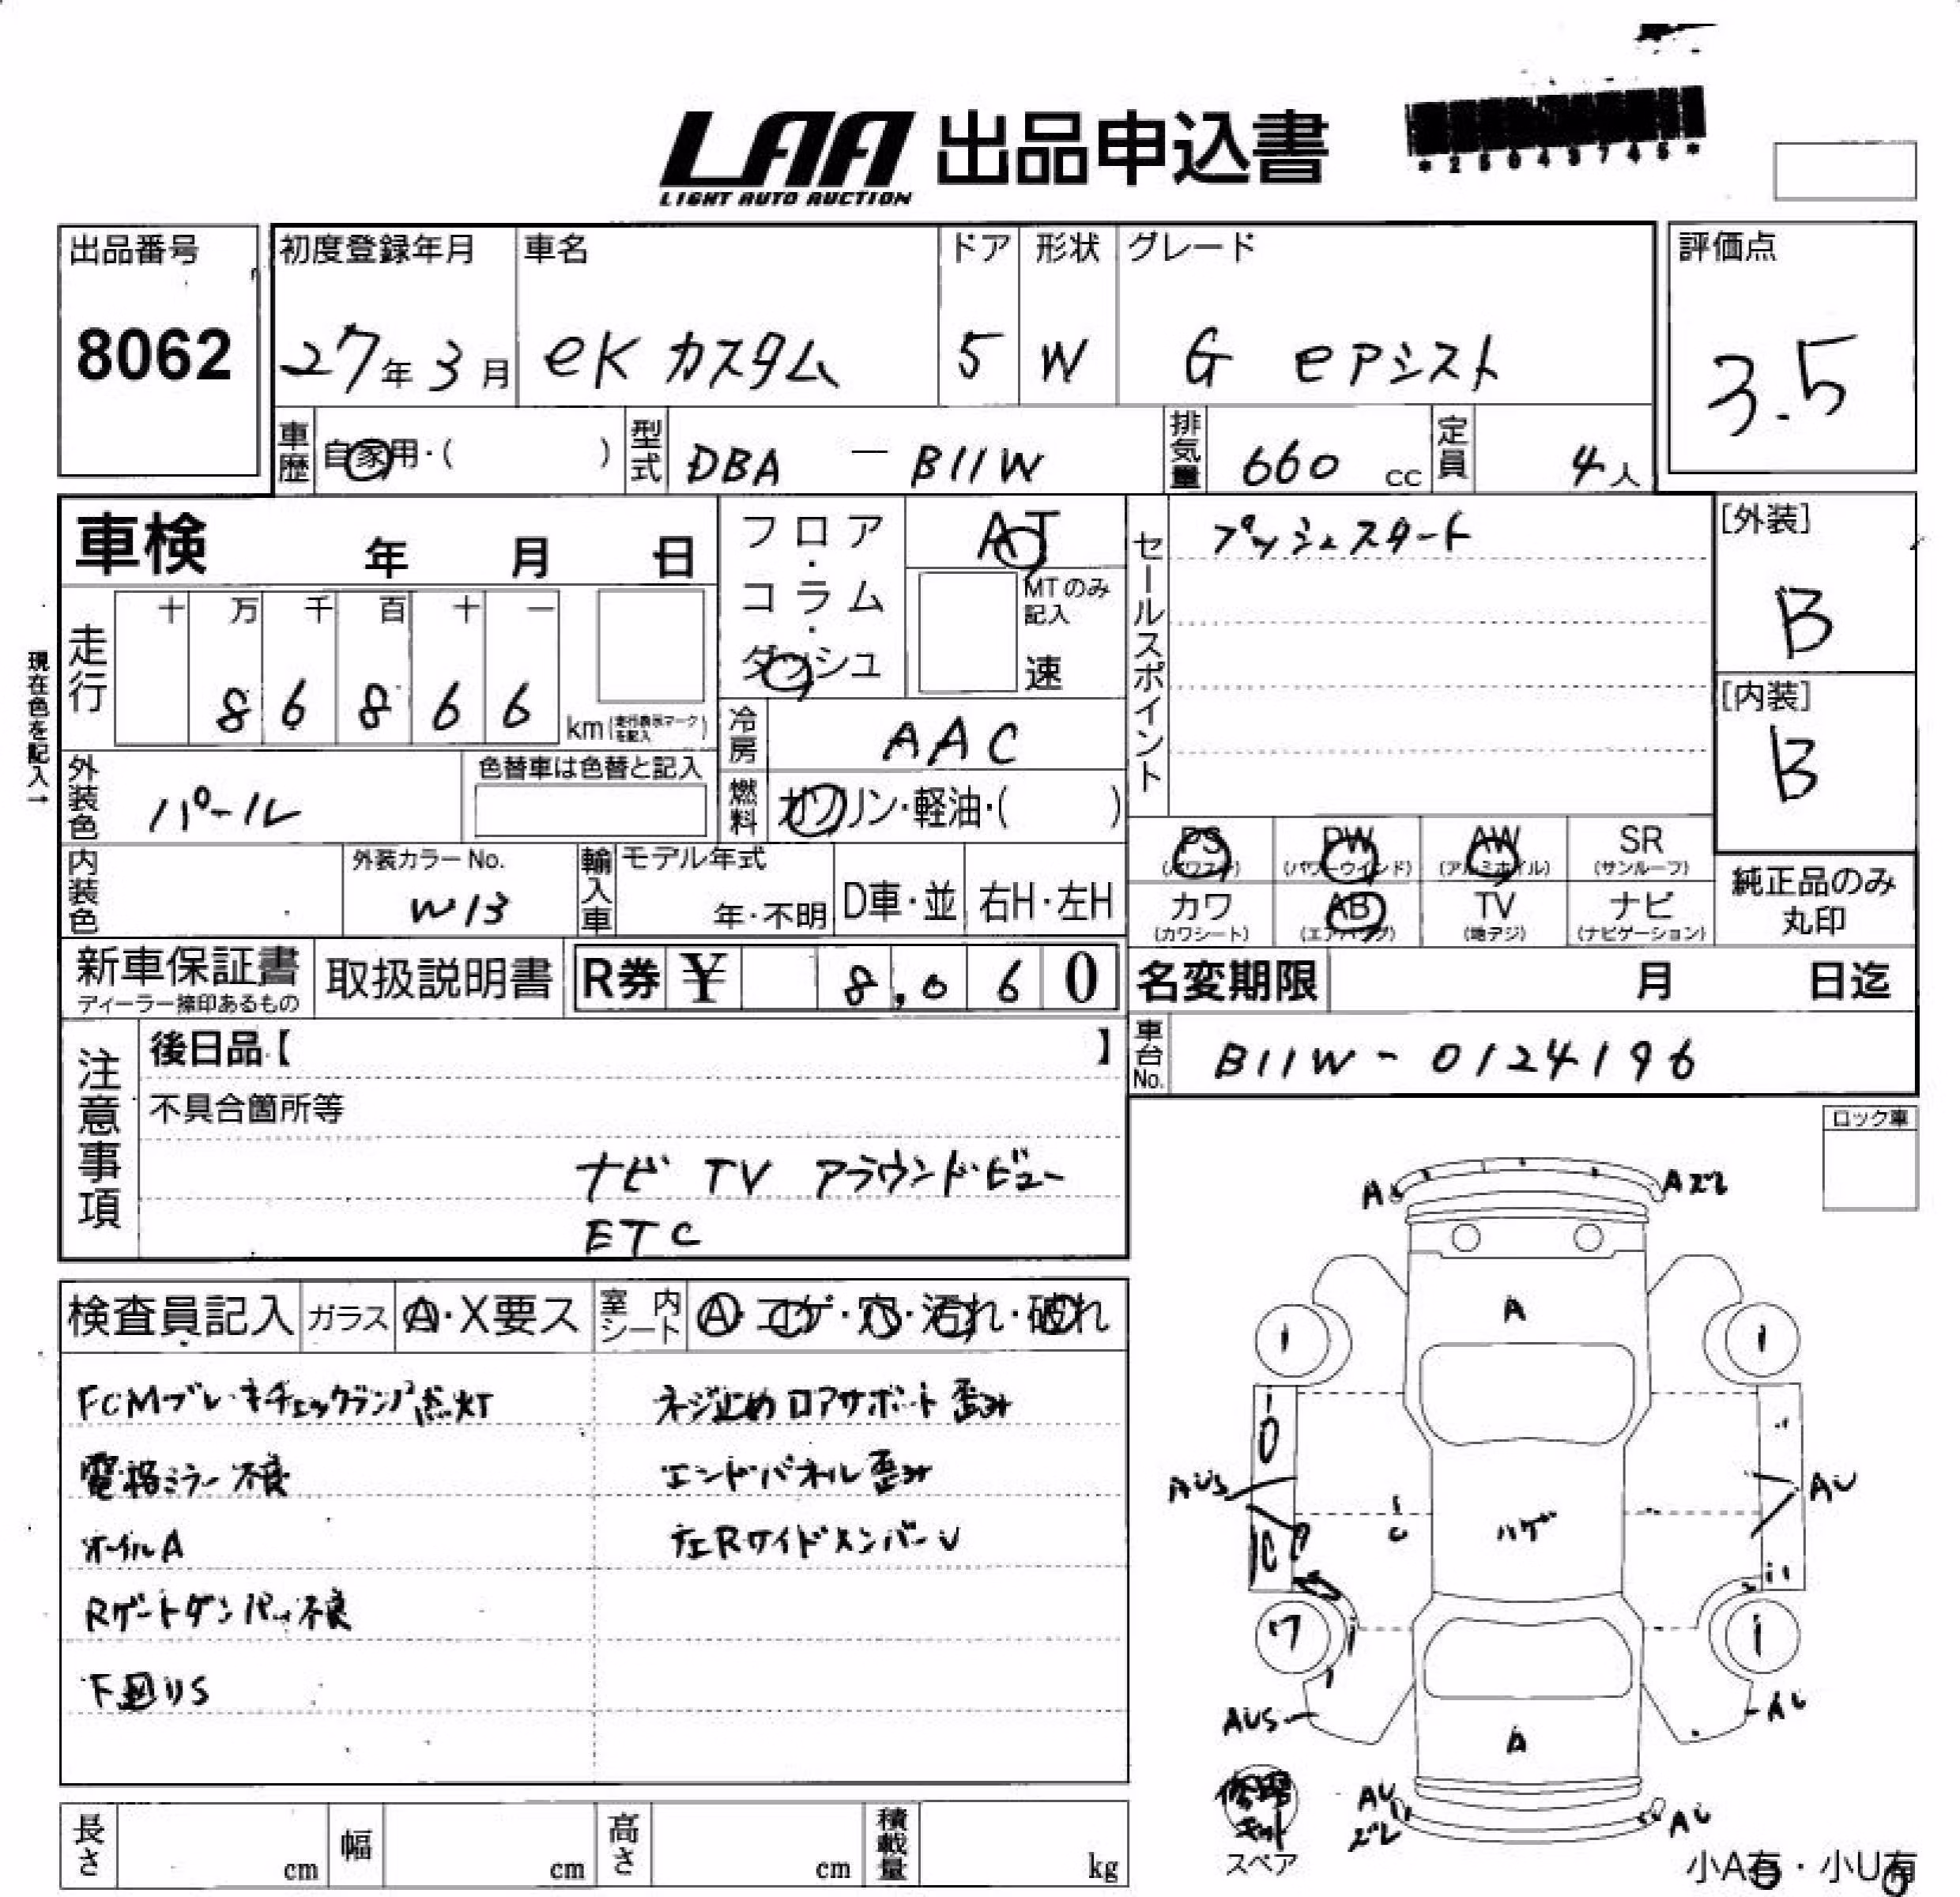 LAA 出品申込書
LIGHT AUTO AUCTION
*25043745*
出品番号 初度登録年月 車名 ドア 形状 グレード 評価点
8062 27年3月 eKカスタム 5 W G eアシスト 3.5
車歴 自家用・( ) 型式 DBA - B11W 排気量 660 cc 定員 4人
車検 年 月 日
フロア・コラム・ダッシュ
AT
MTのみ記入
速
セールスポイント プッシュスタート
[外装]
B
[内装]
B
現在色を記入→
走行 十 万 千 百 十 一
8 6 8 6 6 km(走行表示マークを記入)
冷房 AAC
外装色 パール
色替車は色替と記入
燃料 ガソリン・軽油・( )
内装色
外装カラーNo.
W13
輸入車 モデル年式
年・不明 D車・並 右H・左H
PS (パワステ) PW (パワーウインド) AW (アルミホイル) SR (サンルーフ)
カワ (カワシート) AB (エアバッグ) TV (地デジ) ナビ (ナビゲーション)
純正品のみ
丸印
新車保証書
ディーラー捺印あるもの
取扱説明書 R券 ¥ 8,060
名変期限 月 日迄
車台No. B11W-0124196
注意事項
後日品【 】
不具合箇所等
ナビ TV アラウンドビュー
ETC
ロック車
検査員記入 ガラス A・X要ス 室内シート A・コゲ・穴・汚れ・破れ
FCMブレーキチェックランプ点灯
電格ミラー不良
オイルA
Rゲートダンパー不良
下回りS
ネジ止めロアサポート歪み
エンドパネル歪み
左RサイドメンバーU
A
Aズレ
A
AUS
AU
ハゲ
ワ
AUS
AU
A
修理キット
スペア
AUズレ
AU
小A有・小U有
長さ cm 幅 cm 高さ cm 積載量 kg